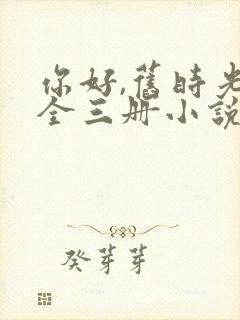 你好,舊時光
全三册小說
癸芽芽